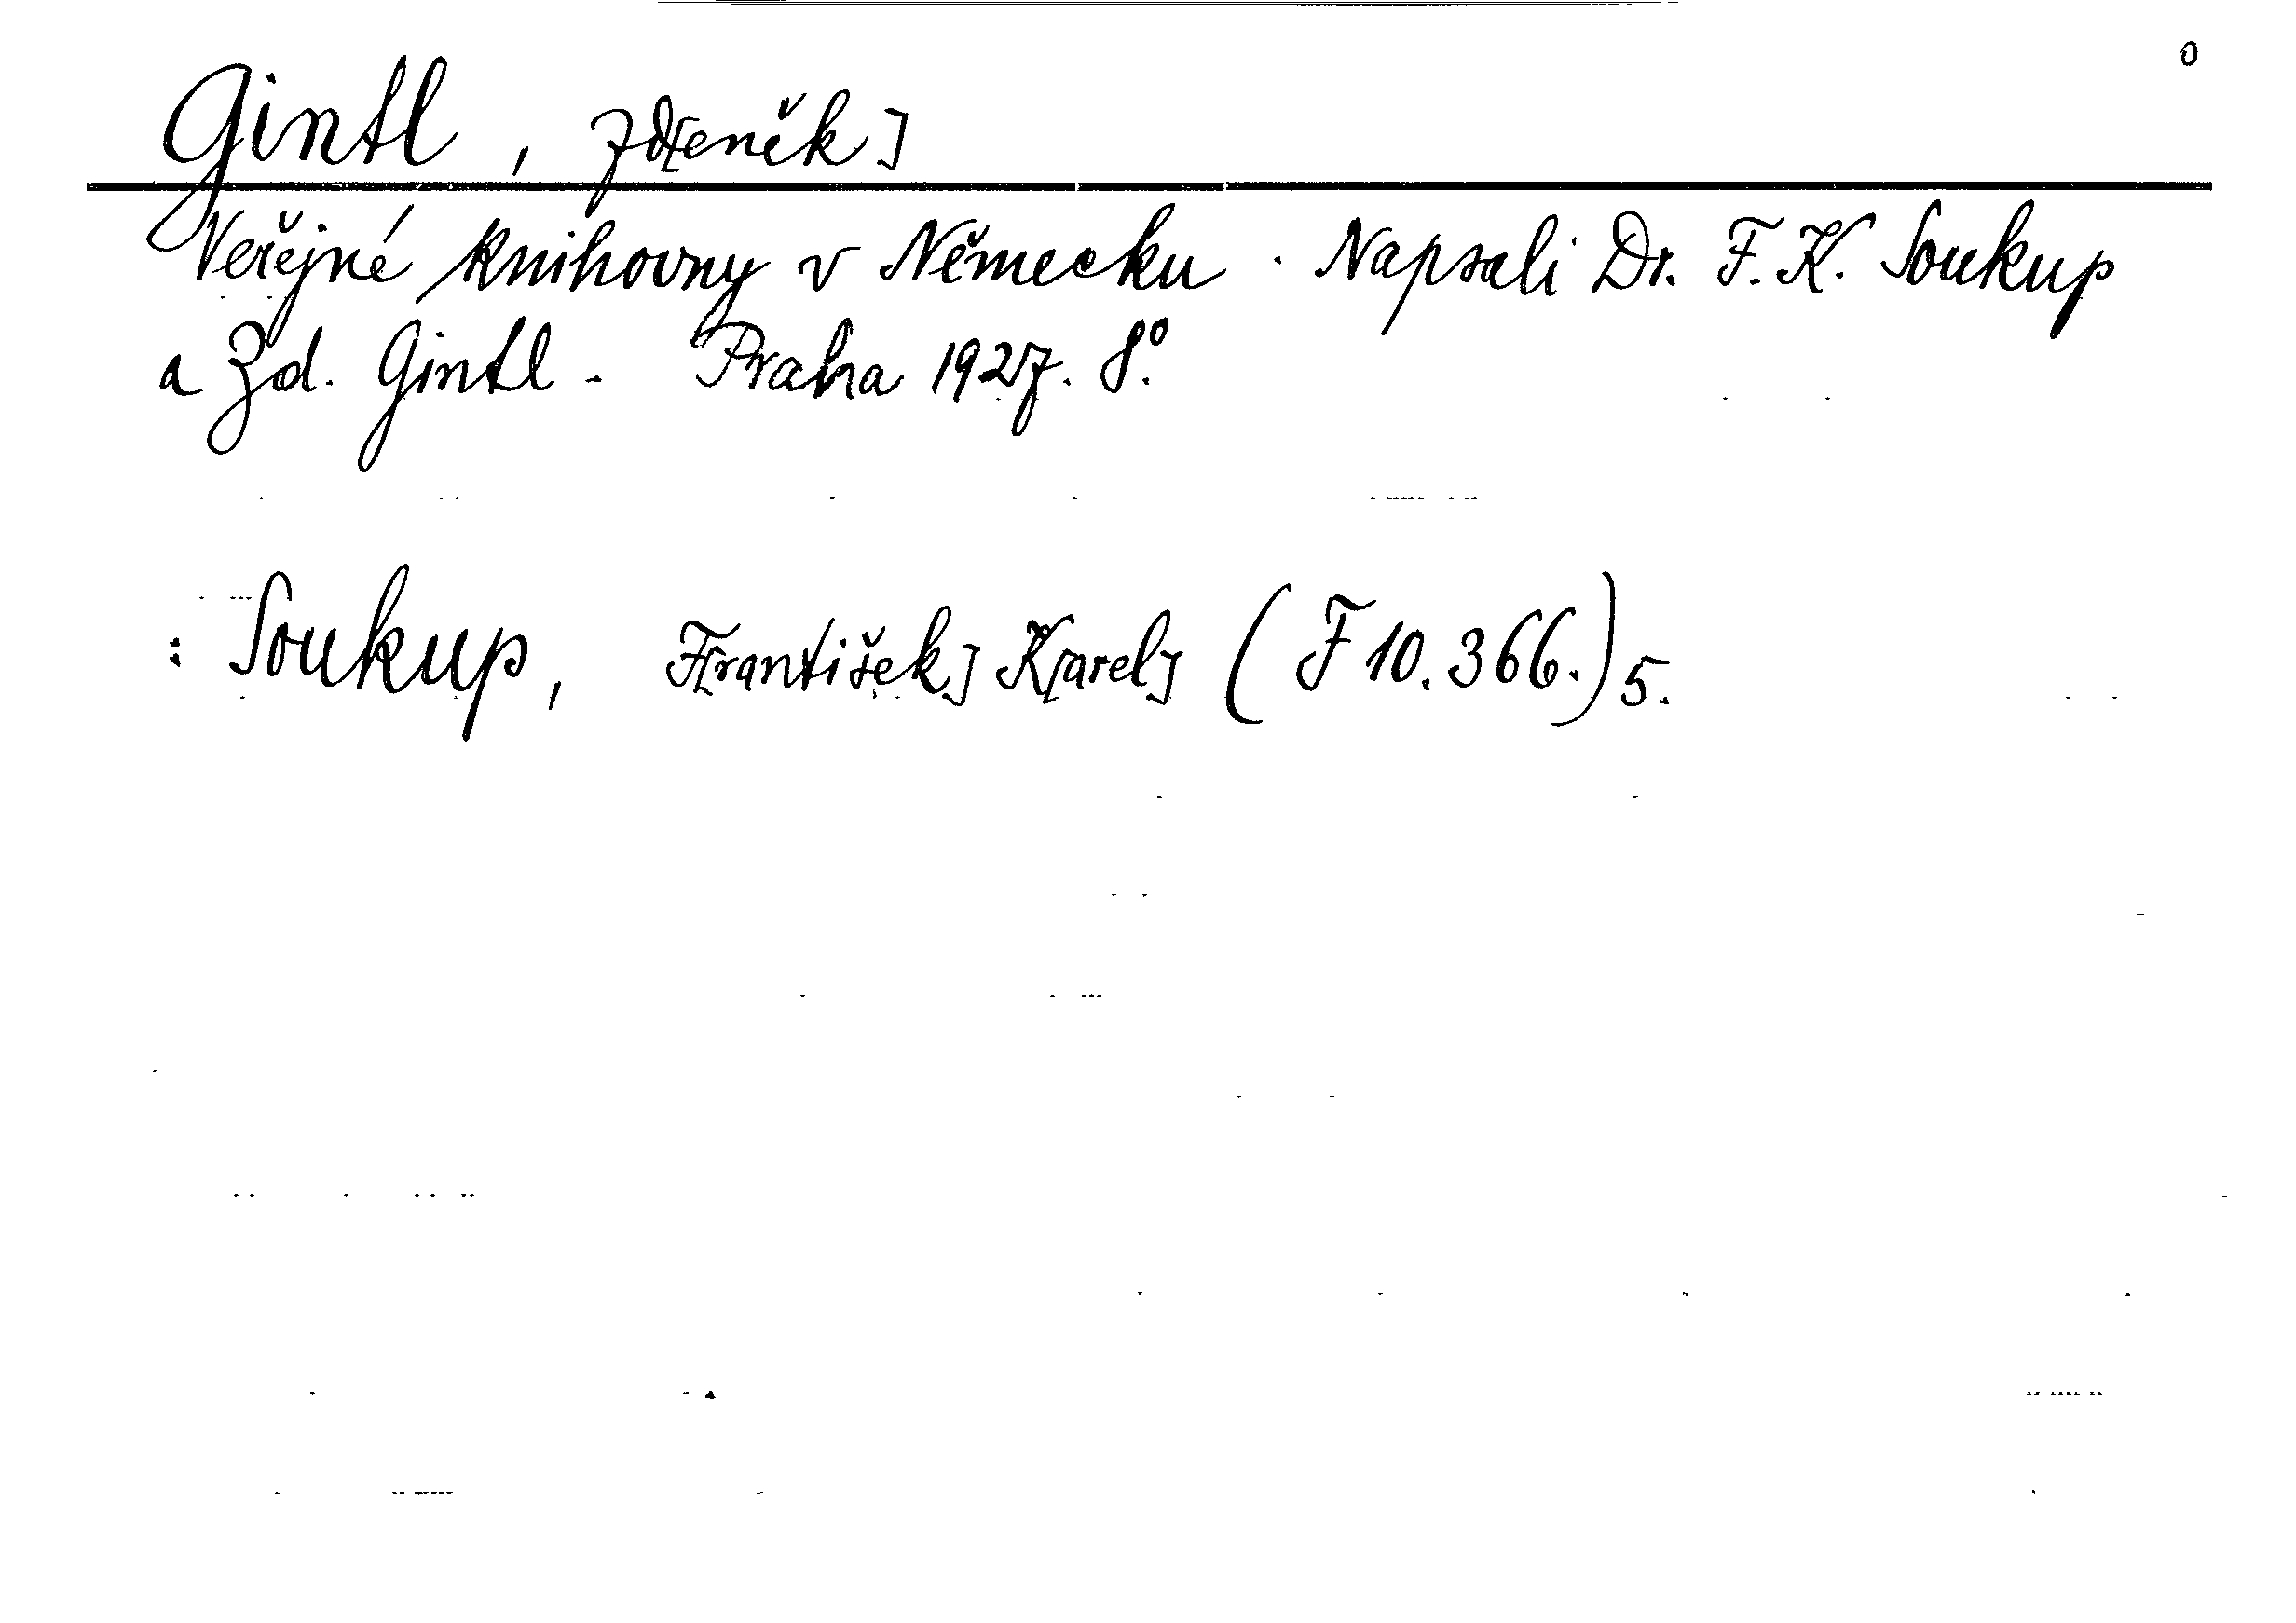 0
Gintl, Zd[eněk]
Veřejné knihovny v Německu. Napsali Dr. F. K. Soukup
a Zd. Gintl. Praha 1927. 8°.
: Soukup, F[rantišek] K[arel] (F 10.366.) 5.